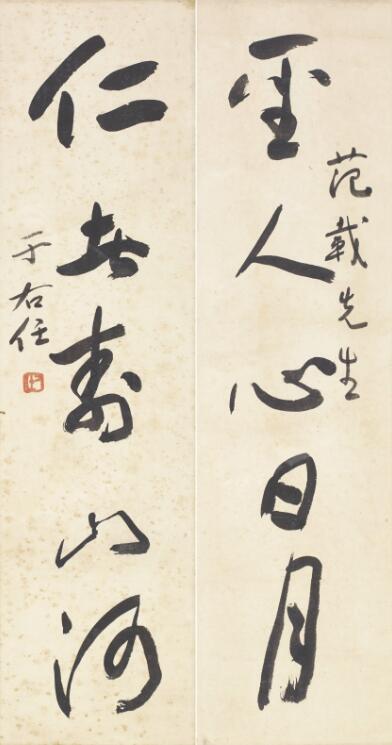 聖人心日月
范載先生
仁者壽山河
于右任